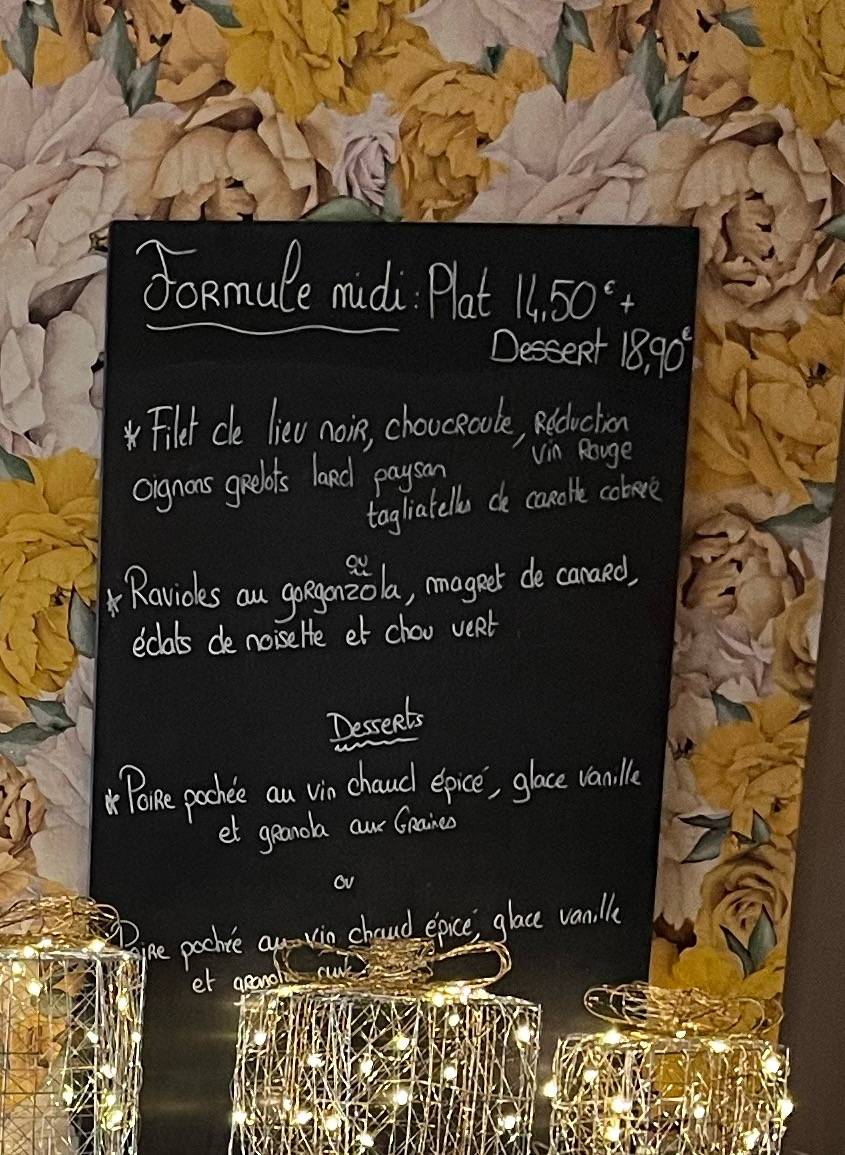 Formule midi : Plat 14,50€ +
Dessert 18,90€
* Filet de lieu noir, choucroute, Réduction
vin Rouge
oignons grelots lard paysan
tagliatelles de carotte
ou
* Ravioles au gorgonzola, magret de canard,
éclats de noisette et chou vert
Desserts
* Poire pochée au vin chaud épicé, glace vanille
et granola aux Graines
ou
Poire pochée au vin chaud épicé, glace vanille
et granola aux